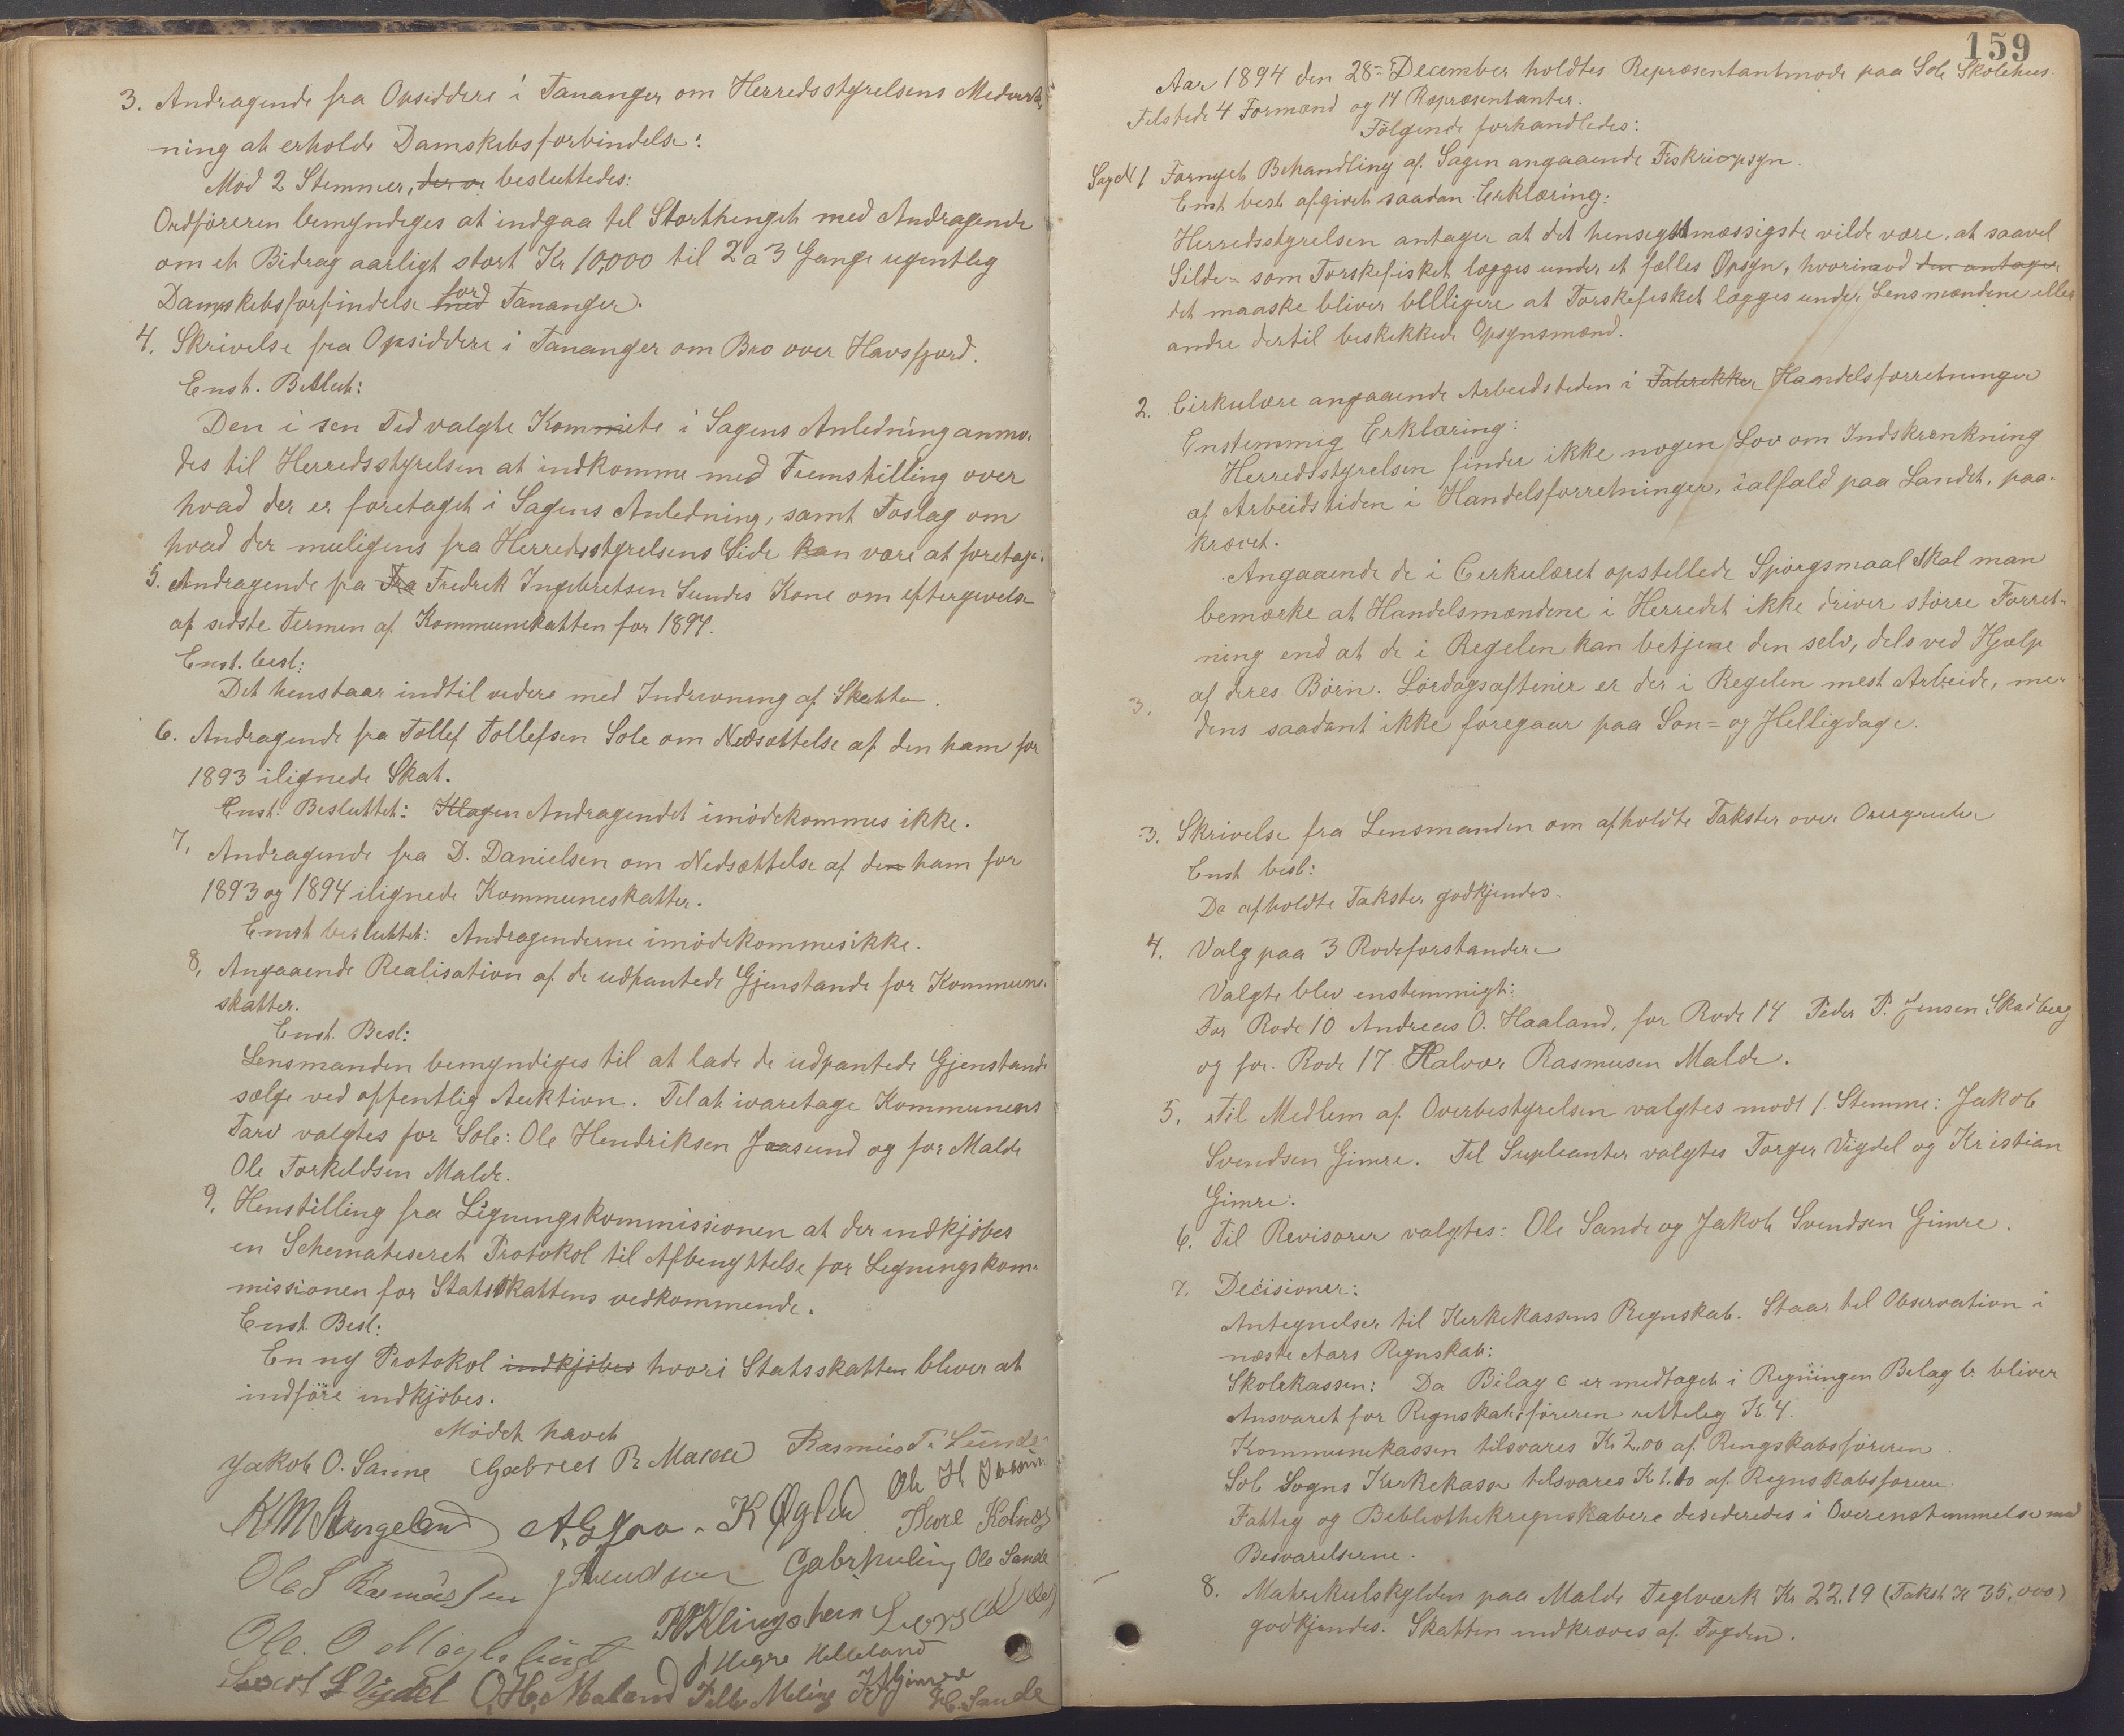 3. Andragende fra Opsiddere i Tananger om Herredsstyrelsens Medvirk-
ning at erholde Damskibsforbindelse:
Mod 2 Stemmer, der ve besluttedes:
Ordføreren bemyndiges at indgaa til Storthinget med Andragende
om et Bidrag aarligt stort Kr 10,000 til 2 a 3 Gange ugentlig
Dampskibsforfindelse med for Tananger.
4. Skrivelse fra Opsiddere i Tananger om Bro over Havsfjord.
Enst. Beslut:
Den i sen Tid valgte Kommite i Sagens Anledning anmo-
des til Herredsstyrelsen at indkomme med Fremstilling over
hvad der er foretaget i Sagens Anledning, samt Foslag om
hvad der muligens fra Herredsstyrelsens Side kan være at foretage.
5. Andragende fra Fra Fredrik Ingebretsen Sundes Kone om eftergivelse
af sidste Termin af Kommuneskatten for 1894.
Enst. besl:
Det henstaar indtil videre med Inddrivning af Skatten.
6. Andragende fra Tollef Tollefsen Sole om Nedsættelse af den ham for
1893 ilignede Skat.
Enst. Besluttet: Klagen Andragendet imødekommes ikke.
7. Andragende fra D. Danielsen om Nedsættelse af den ham for
1893 og 1894 ilignede Kommuneskatter.
Enst besluttet: Andragenderne imødekommes ikke.
8. Angaaende Realisation af de udpantede Gjenstande for Kommune-
skatter.
Enst. Besl:
Lensmanden bemyndiges til at lade de udpantede Gjenstande
sælge ved offentlig Auktion. Til at ivaretage Kommunens
Tarv valgtes for Sole: Ole Hendriksen Jaasund og for Malde
Ole Torkildsen Malde.
9. Henstilling fra Ligningskommissionen at der indkjøbes
en Schematiseret Protokol til Afbenyttelse for Ligningskom-
missionen for Statsskattens vedkommende.
Enst. Besl:
En ny Protokol indkjøbes hvori Statsskatten bliver at
indføre indkjøbes.
Mødet hævet
Jakob O. Sanne Gabriel R Malde Rasmus T. Sunde
K M Stangeland K Øglend Ole H
Thore Kolnes
Ole S Rasmussen J Svendsen Gabr Meling Ole Sande
Ole. O
Klingsheim
Helleland
Sivert S Vigdel O. H. Meling J Gimre
Sande
159
Aar 1894 den 28de December holdtes Repræsentantmøde paa Sole Skolehus.
Tilstede 4 Formænd og 14 Repræsentanter.
Følgende forhandledes:
Sag No 1 Fornyet Behandling af Sagen angaaende Fiskriopsyn.
Enst besl. afgivet saadan Erklæring:
Herredsstyrelsen antager at det hensigtsmæssigste vilde være, at saavel
Silde- som Torskefisket lægges under et fælles Opsyn, hvorimod den antager
det maaske bliver billigere at Torskefisket lægges under Lensmændene eller
andre dertil beskikkede Opsynsmænd.
2. Cirkulære angaaende Arbeidstiden i Fabrikker Handelsforretninger
Enstemmig Erklæring:
Herredsstyrelsen finder ikke nogen Lov om Indskrænkning
af Arbeidstiden i Handelsforretninger, ialfald paa Landet, paa-
krævet.
Angaaende de i Cirkulæret opstillede Spørgsmaal skal man
bemærke at Handelsmændene i Herredet ikke driver større Forret-
ning end at de i Regelen kan betjene den selv, dels ved Hjælp
af deres Børn. Lørdagsaftener er der i Regelen mest Arbeide, me-
3.
dens saadant ikke foregaar paa Søn- og Helligdage.
3. Skrivelse fra Lensmanden om afholdte Takster over Osergruter
Enst besl:
De afholdte Takster godkjendes.
4. Valg paa 3 Rodeforstandere
Valgte blev enstemmigt:
For Rode 10 Andreas O. Haaland, for Rode 14 Peder P. Jensen Skadberg
og for Rode 17 Halvor Rasmusen Malde.
5. Til Medlem af Overbestyrelsen valgtes modt 1 Stemme: Jakob
Svendsen Gimre. Til Supleanter valgtes Torger Vigdel og Kristian
Gimre.
6. Til Revisorer valgtes: Ole Sande og Jakob Svendsen Gimre.
7. Decisioner:
Antegnelser til Kirkekassens Regnskab. Staar til Observation i
næste Aars Regnskab:
Skolekassen: Da Bilag c er medtaget i Regningen Bilag b bliver
Ansvaret for Regnskabsføreren rettelig K. 4.
Kommunekassen tilsvares Kr 2,00 af Ringskabsføreren.
Sole Sogns Kirkekasse tilsvares K 1.10 af Regnskabsføreren.
Fattig og Bibliothekregnskabere desideredes i Overenstemmelse med
Besvarelserne.
8. Matrikulskylden paa Malde Teglværk Kr 22.19 (Takst K 35,000)
godkjendes. Skatten indkræves af Fogden.